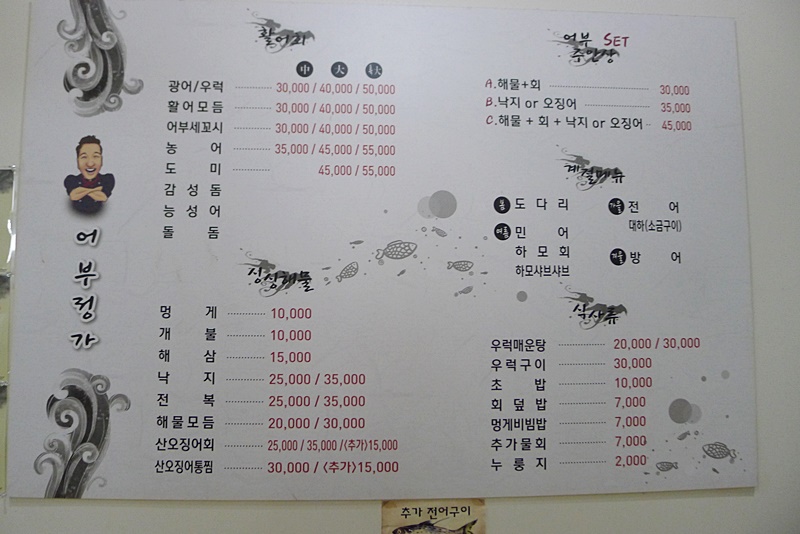 어부정가
활어회
中 大 特
광어/우럭 30,000 / 40,000 / 50,000
활어모듬 30,000 / 40,000 / 50,000
어부세꼬시 30,000 / 40,000 / 50,000
농어 35,000 / 45,000 / 55,000
도미 45,000 / 55,000
감성돔
능성어
돌돔
싱싱해물
멍게 10,000
개불 10,000
해삼 15,000
낙지 25,000 / 35,000
전복 25,000 / 35,000
해물모듬 20,000 / 30,000
산오징어회 25,000 / 35,000 /<추가>15,000
산오징어통찜 30,000 / <추가>15,000
어부 SET
주안상
A.해물+회 30,000
B.낙지 or 오징어 35,000
C.해물 + 회 + 낙지 or 오징어 45,000
계절메뉴
봄 도다리
여름 민어
하모회
하모샤브샤브
가을 전어
대하(소금구이)
겨울 방어
식사류
우럭매운탕 20,000 / 30,000
우럭구이 30,000
초밥 10,000
회덮밥 7,000
멍게비빔밥 7,000
추가물회 7,000
누룽지 2,000
추가 전어구이